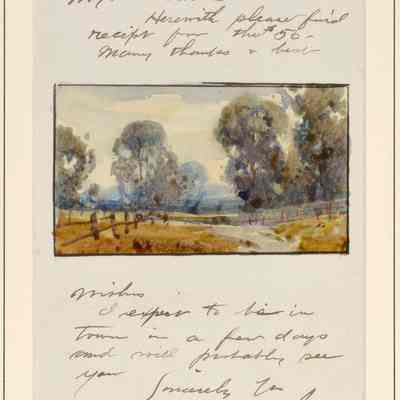 Herewith please find
recipt for the $50-
Many thanks & best
wishes
I expect to be in
town in a few days
and will probably see
you
Sincerely